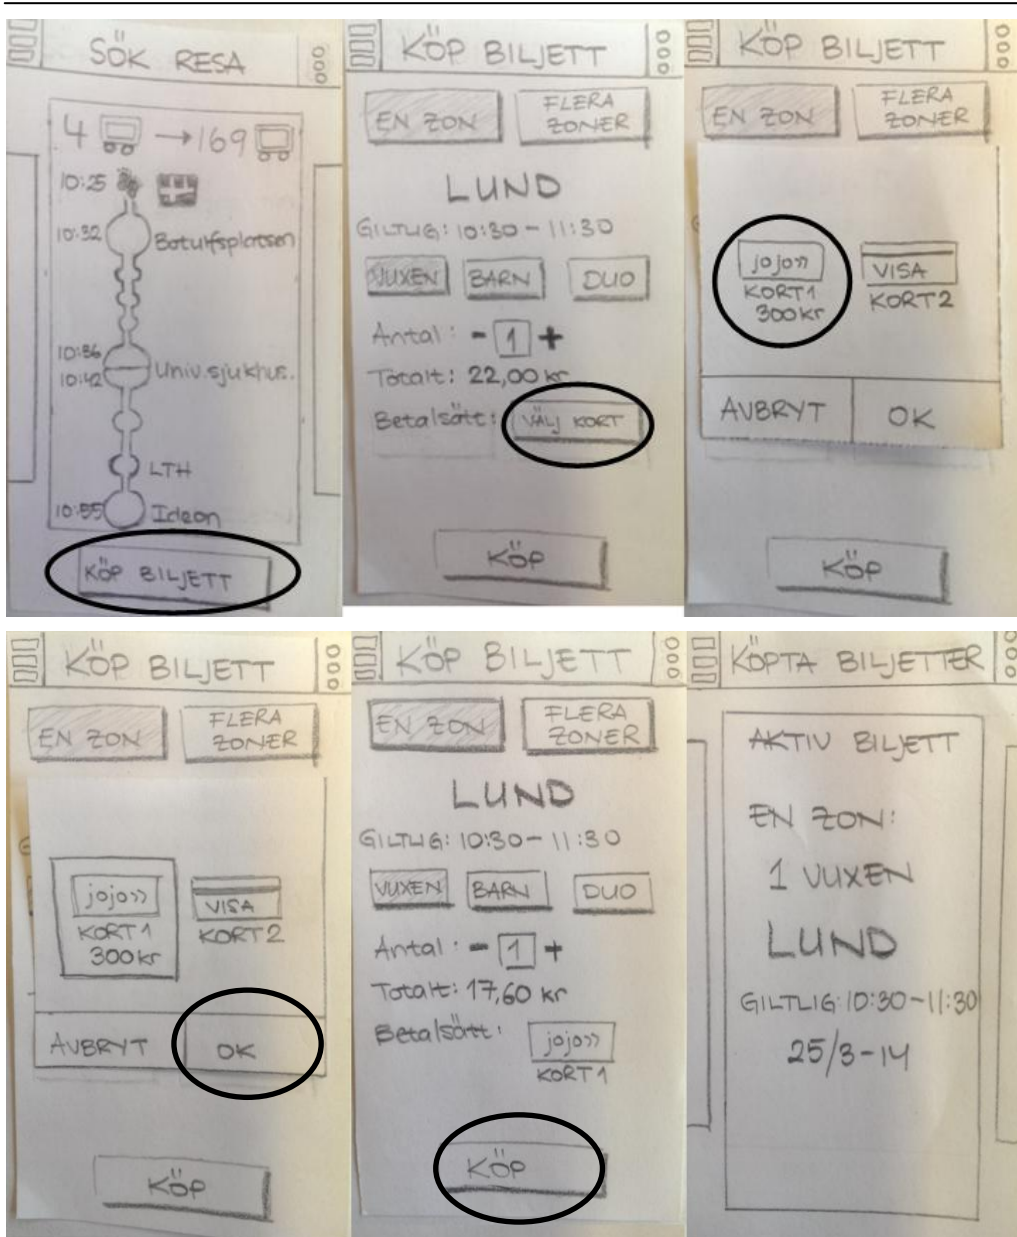 SÖK RESA
4 → 169
10:25
10:32 Botulfsplatsen
10:36
10:42 Univ.sjukhus.
LTH
10:55 Ideon
KÖP BILJETT
KÖP BILJETT
EN ZON
FLERA
ZONER
LUND
GILTLIG: 10:30 - 11:30
VUXEN BARN DUO
Antal: - 1 +
Totalt: 22,00 kr
Betalsätt: VÄLJ KORT
KÖP
KÖP BILJETT
EN ZON
FLERA
ZONER
jojo)))
VISA
KORT1
KORT2
300kr
AVBRYT OK
KÖP
KÖP BILJETT
EN ZON
FLERA
ZONER
jojo)))
VISA
KORT1
KORT2
300kr
AVBRYT OK
KÖP
KÖP BILJETT
EN ZON
FLERA
ZONER
LUND
GILTLIG: 10:30 - 11:30
VUXEN BARN DUO
Antal: - 1 +
Totalt: 17,60 kr
Betalsätt: jojo)))
KORT1
KÖP
KÖPTA BILJETTER
AKTIV BILJETT
EN ZON:
1 VUXEN
LUND
GILTLIG: 10:30-11:30
25/3-14